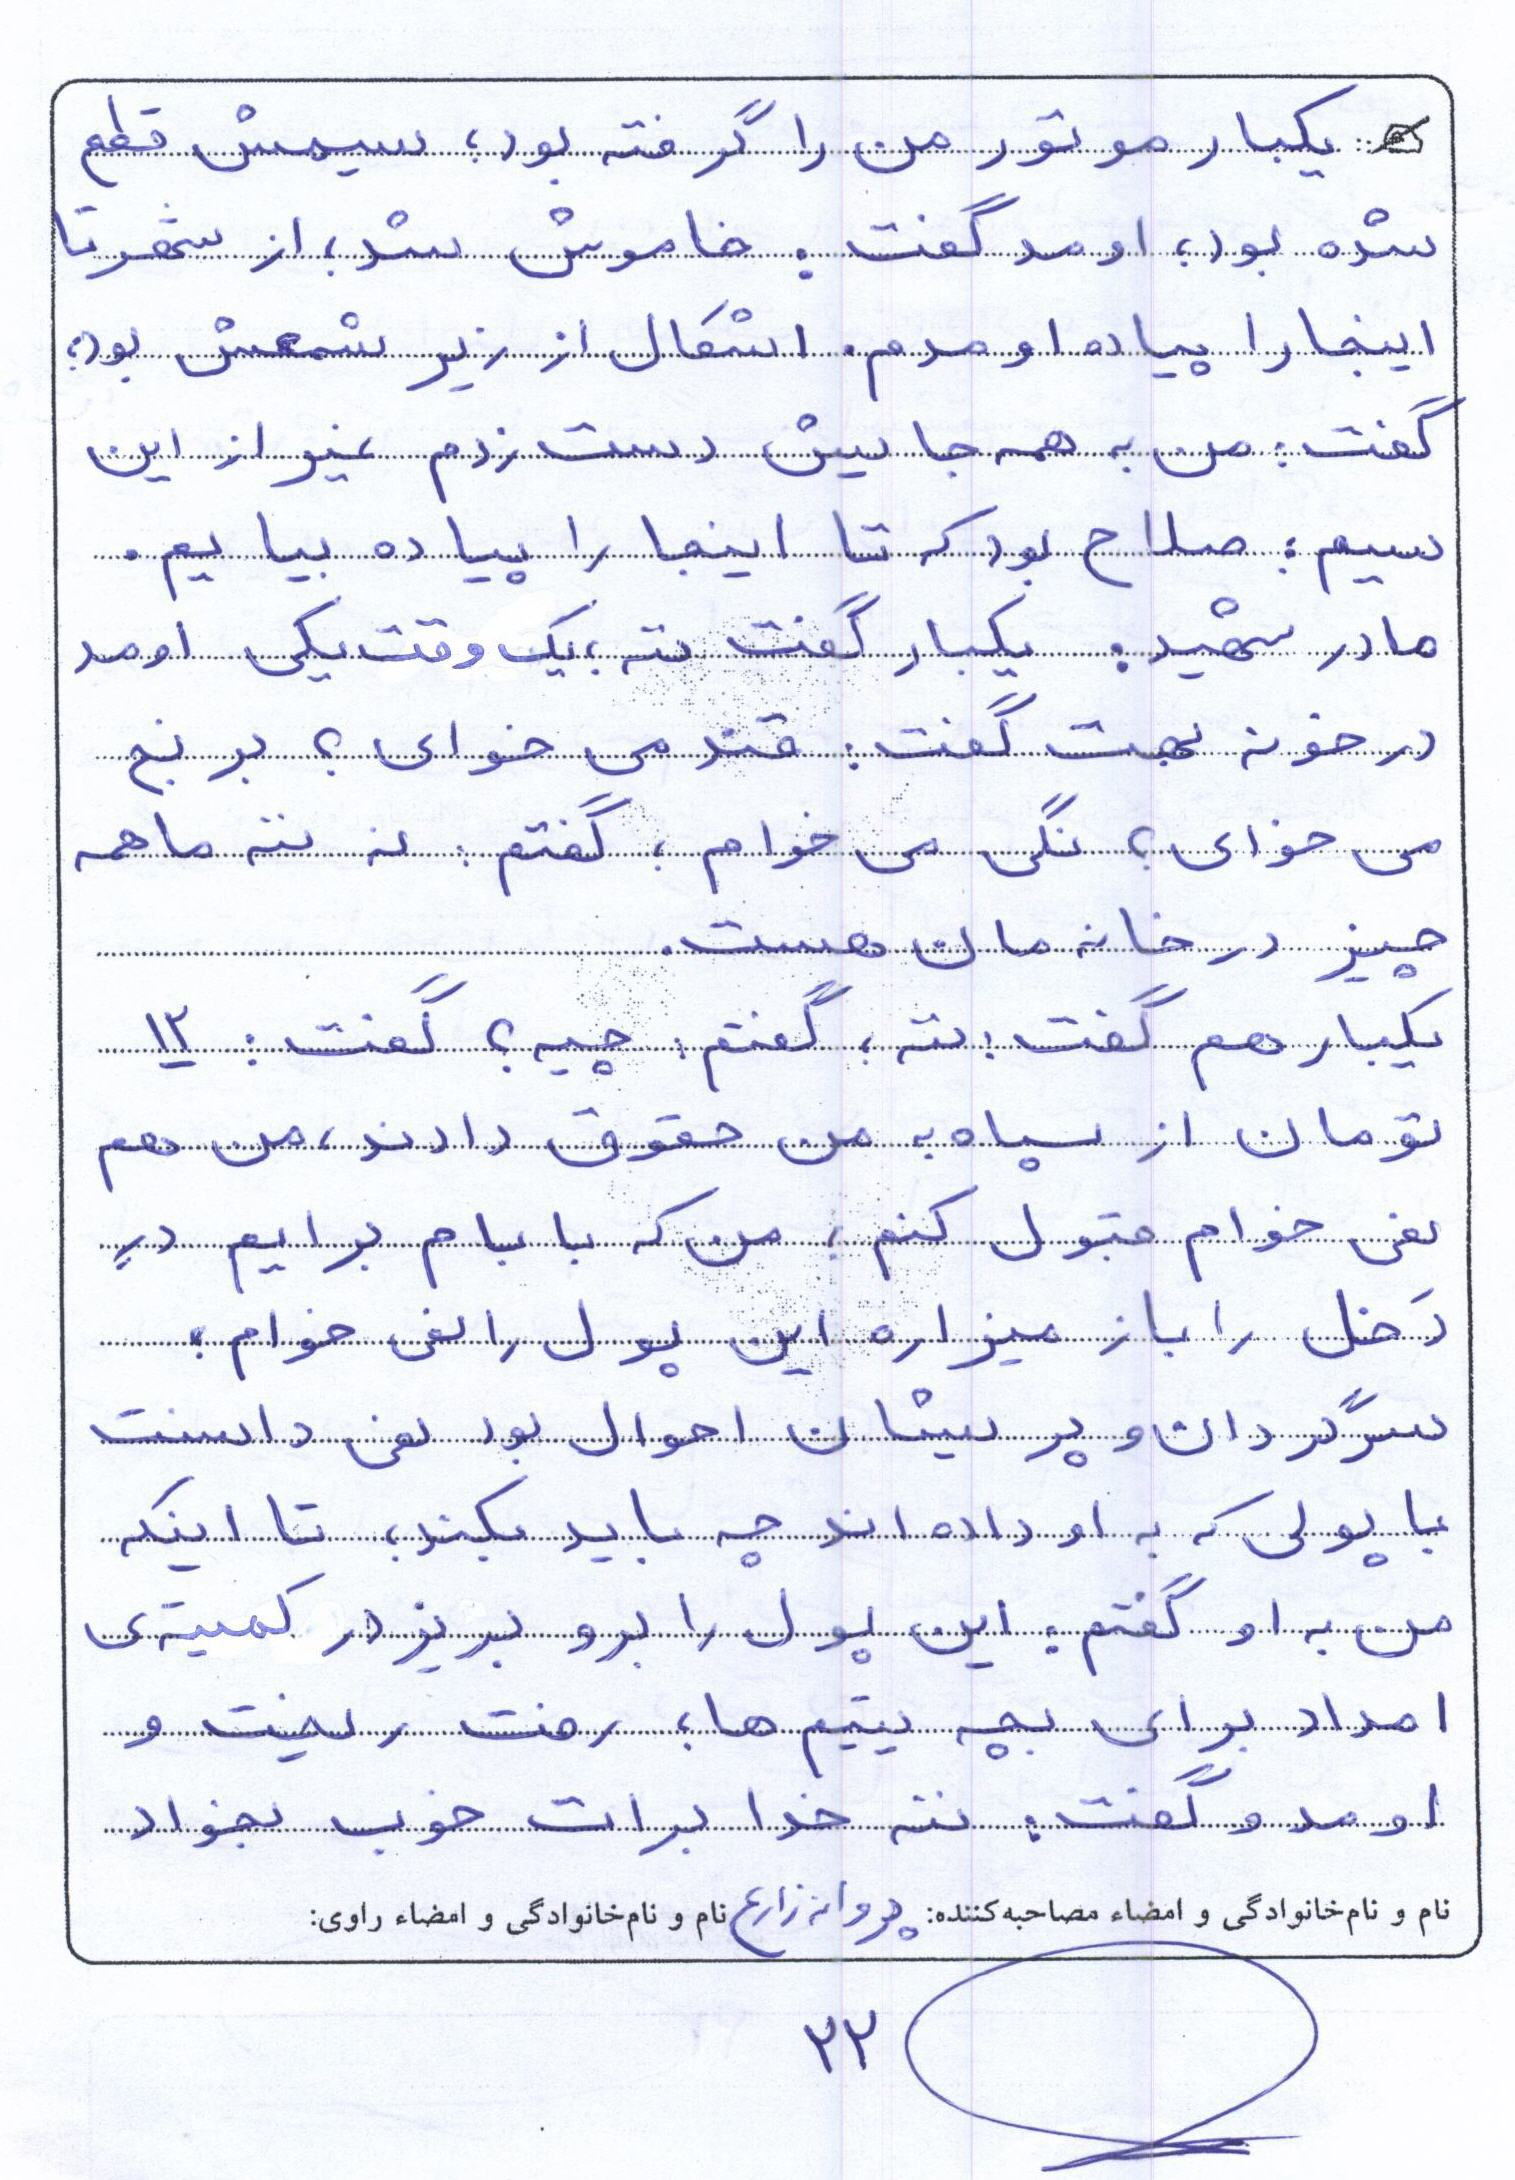 یکبار موتور من را گرفته بود؛ سیمش قطع
شده بود؛ اومد گفت: خاموش شد؛ از شهر تا
اینجا را پیاده اومدم. اشکال از زیر شمعش بود؛
گفت: من به همه جاییش دست زدم غیر از این
سیم؛ صلاح بود که تا اینجا را پیاده بیایم.
مادر شهید: یکبار گفت ننه؛ یک وقت یکی اومد
در خونه بهت گفت: قند می خوای؟ برنج
می خوای؟ نگی می خوام؛ گفتم: نه ننه ما همه
چیز در خانه مان هست.
یکبار هم گفت: ننه؛ گفتم: چیه؟ گفت: ۱۲
تومان از سپاه به من حقوق دادند، من هم
نمی خوام قبول کنم؛ من که بابام برایم درِ
دَخل را باز میزاره این پول را نمی خوام؛
سرگردان و پریشان احوال بود نمی دانست
با پولی که به او داده اند چه باید بکند؛ تا اینکه
من به او گفتم: این پول را برو بریز در کمیته‌ی
امداد برای بچه یتیم ها؛ رفت ریخت و
اومد و گفت: ننه خدا برات خوب بخواد
نام و نام‌خانوادگی و امضاء مصاحبه‌کننده: پروانه زارع نام و نام‌خانوادگی و امضاء راوی:
۲۲